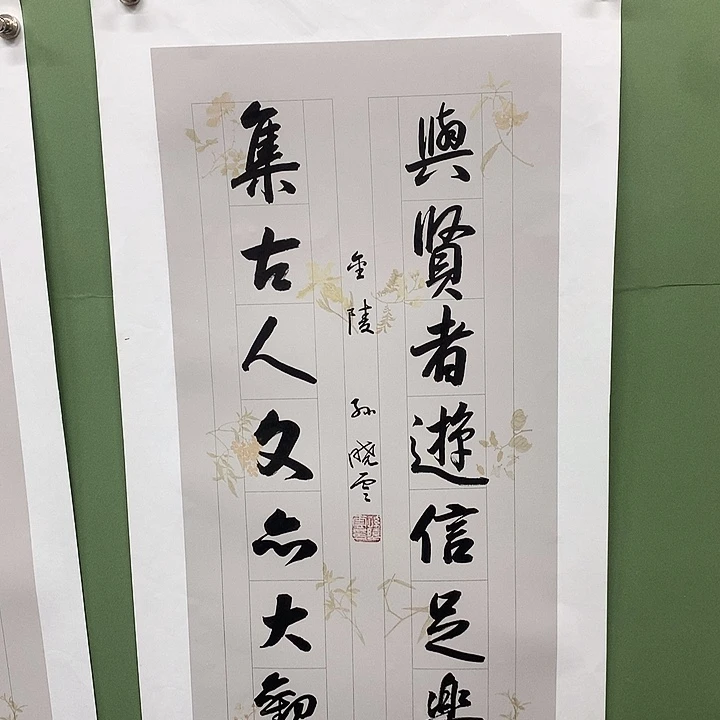 與賢者遊信足樂
集古人文亦大觀
金陵 孙晓雲